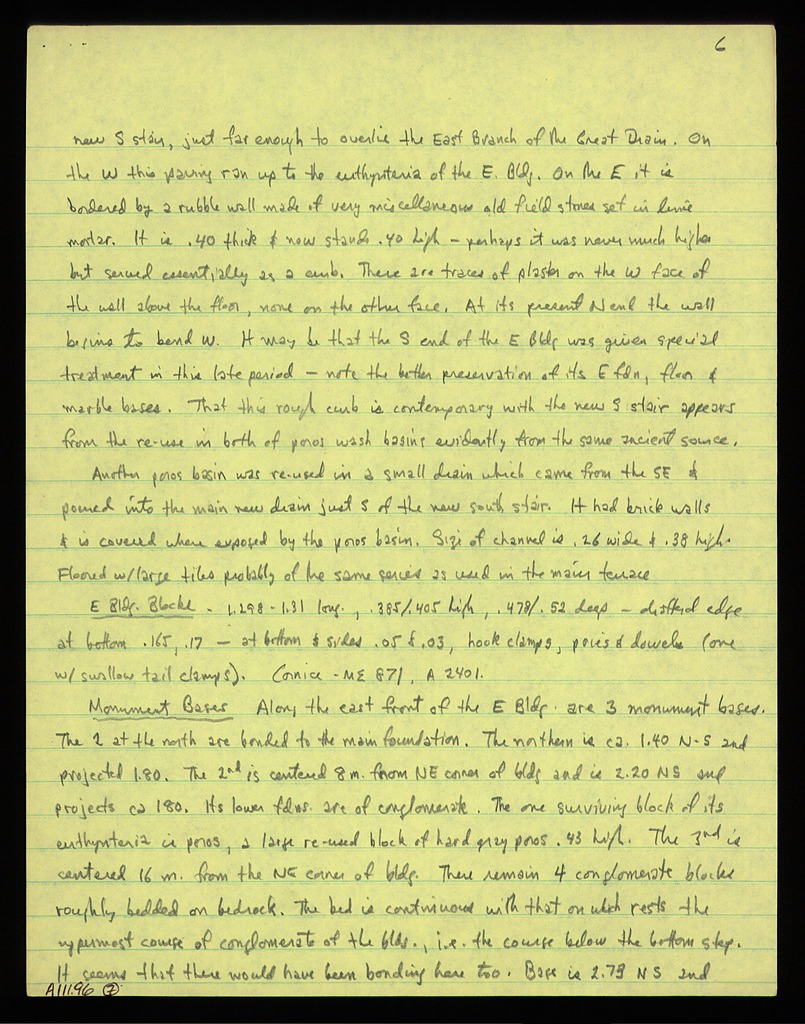 6
new S stair, just far enough to overlie the East Branch of the Great Drain. On
the W this paving ran up to the euthynteria of the E. Bldg. On the E it is
bordered by a rubble wall made of very miscellaneous old field stones set in lime
mortar. It is .40 thick & now stands .40 high – perhaps it was never much higher
but served essentially as a curb. There are traces of plaster on the W face of
the wall above the floor, none on the other face. At its present N end the wall
begins to bend W. It may be that the S end of the E Bldg was given special
treatment in this late period – note the better preservation of its E fdn, floor &
marble bases. That this rough curb is contemporary with the new S stair appears
from the re-use in both of poros wash basins evidently from the same ancient source.
Another poros basin was re-used in a small drain which came from the SE &
poured into the main new drain just S of the new south stair. It had brick walls
& is covered where exposed by the poros basin. Size of channel is .26 wide & .38 high.
Floored w/large tiles probably of the same series as used in the main terrace
E Bldg. Blocks - 1.298 - 1.31 long, .385/.405 high, .478/.52 deep – edge
at bottom .165, .17 – at bottom & sides .05 & .03, hook clamps, & dowels (one
w/ swallow tail clamps). Cornice - ME 871, A 2401.
Monument Bases Along the east front of the E Bldg. are 3 monument bases.
The 2 at the north are bonded to the main foundation. The northern is ca. 1.40 N-S and
projected 1.80. The 2nd is centered 8 m. from NE corner of bldg and is 2.20 NS and
projects ca 1.80. Its lower fdns. are of conglomerate. The one surviving block of its
euthynteria is poros, a large re-used block of hard gray poros .43 high. The 3rd is
centered 16 m. from the NE corner of bldg. There remain 4 conglomerate blocks
roughly bedded on bedrock. The bed is continuous with that on which rests the
uppermost course of conglomerate of the bldg., i.e. the course below the bottom step.
It seems that there would have been bonding here too. Base is 2.79 NS and
A111.96 7